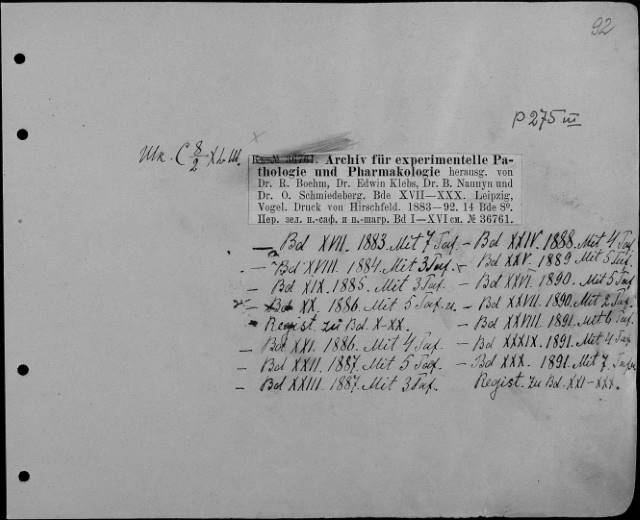 92
P 275 III
C 8/2
№ 36761. Archiv für experimentelle Pa-
thologie und Pharmakologie herausg. von
Dr. R. Boehm, Dr. Edwin Klebs, Dr. B. Naunyn und
Dr. O. Schmiedeberg. Bde XVII—XXX. Leipzig,
Vogel. Druck von Hirschfeld. 1883—92. 14 Bde 8º.
Пер. зел. п.-саф. и п.-шагр. Bd I—XVI см. № 36761.
— Bd XVII. 1883. Mit 7 Taf.
— Bd XVIII. 1884. Mit 3 Taf.
— Bd XIX. 1885. Mit 3 Taf.
— Bd XX. 1886. Mit 5 Taf. u.
Regist. zu Bd. X-XX.
— Bd XXI. 1886. Mit 4 Taf.
— Bd XXII. 1887. Mit 5 Taf.
— Bd XXIII. 1887. Mit 3 Taf.
— Bd XXIV. 1888. Mit 4 Taf.
— Bd XXV. 1889 Mit 5 Taf.
— Bd XXVI. 1890. Mit 5 Taf
— Bd XXVII. 1890. Mit 2 Taf.
— Bd XXVIII. 1891. Mit 6 Taf.
— Bd XXXIX. 1891. Mit 4 Taf
— Bd XXX. 1891. Mit 7 Taf u
Regist. zu Bd. XXI-XXX.